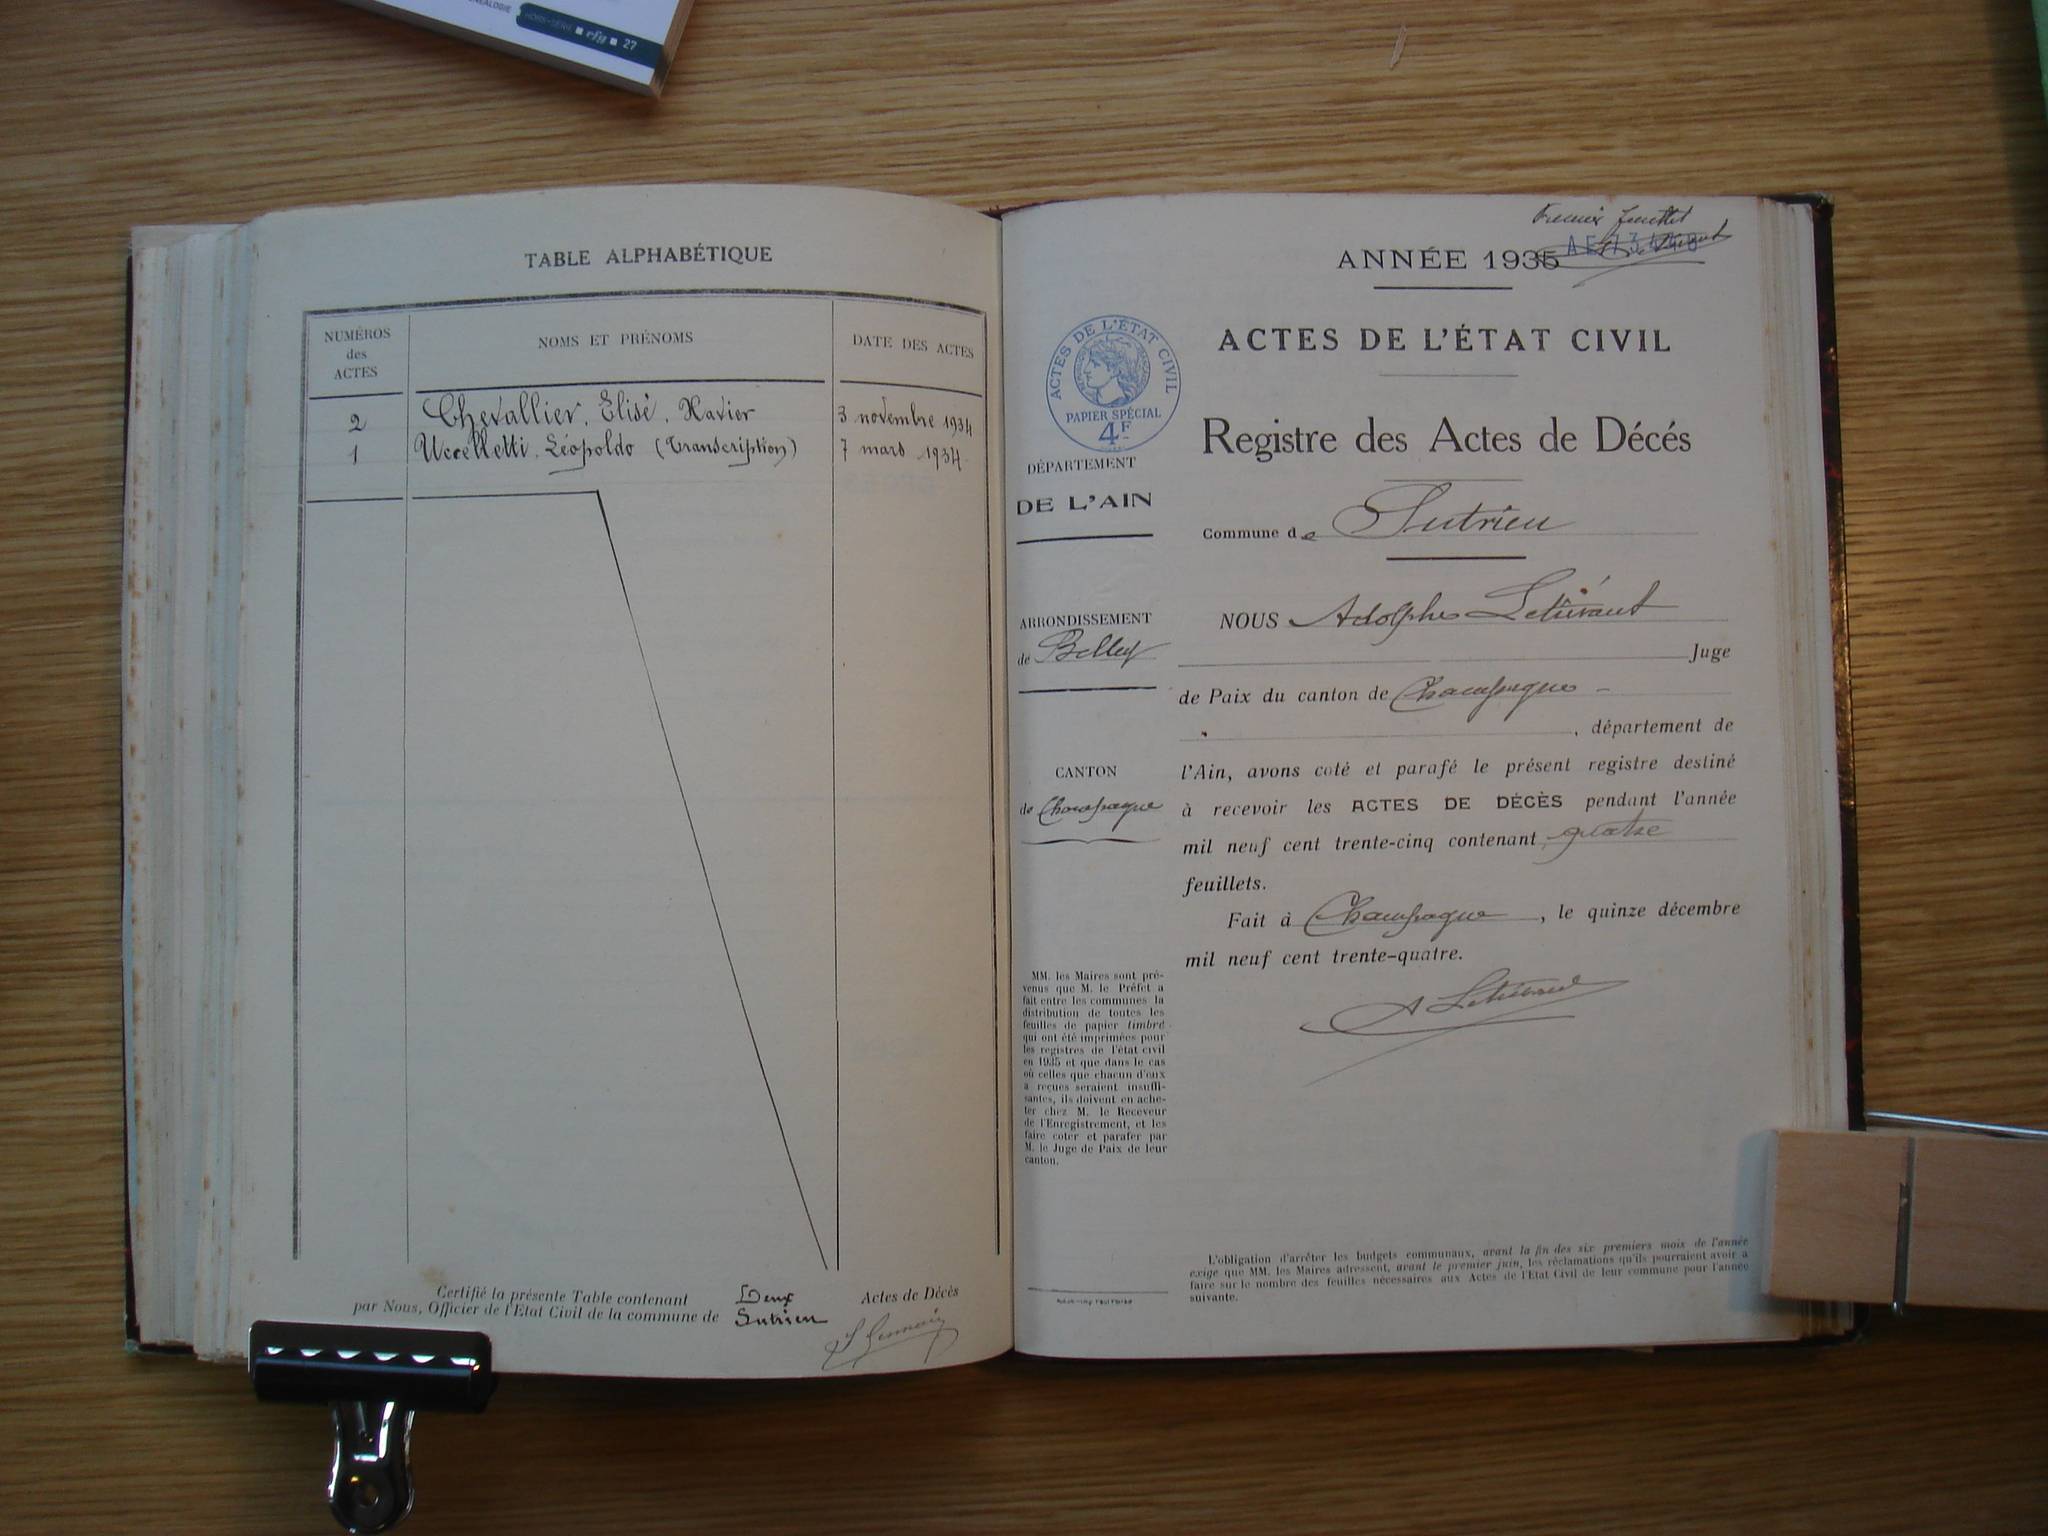 HORS-SÉRIE ■ rfg ■ 27
TABLE ALPHABÉTIQUE
NUMÉROS
des
ACTES
NOMS ET PRÉNOMS
DATE DES ACTES
2 Chevallier, Elisé, Xavier 3 novembre 1934
1 Uccelletti, Léopoldo (Transcription) 7 mars 1934
Certifié la présente Table contenant Deux Actes de Décès
par Nous, Officier de l'Etat Civil de la commune de Sutrieu
Premier feuillet
ANNÉE 1935
ACTES DE L'ÉTAT CIVIL
ACTES DE L'ÉTAT CIVIL
PAPIER SPÉCIAL
4F
Registre des Actes de Décés
DÉPARTEMENT
DE L'AIN
Commune de Sutrieu
ARRONDISSEMENT
de Belley
NOUS Adolphe Letiévant
Juge
de Paix du canton de Champagne
, département de
CANTON
de Champagne
l'Ain, avons coté et parafé le présent registre destiné
à recevoir les ACTES DE DÉCÈS pendant l'année
mil neuf cent trente-cinq contenant quatre
feuillets.
Fait à Champagne, le quinze décembre
mil neuf cent trente-quatre.
MM. les Maires sont pré-
venus que M. le Préfet a
fait entre les communes la
distribution de toutes les
feuilles de papier timbré
qui ont été imprimées pour
les registres de l'état civil
en 1935 et que dans le cas
où celles que chacun d'eux
a reçues seraient insuffi-
santes, ils doivent en ache-
ter chez M. le Receveur
de l'Enregistrement, et les
faire coter et parafer par
M. le Juge de Paix de leur
canton.
L'obligation d'arrêter les budgets communaux, avant la fin des six premiers mois de l'année
exige que MM. les Maires adressent, avant le premier juin, les réclamations qu'ils pourraient avoir à
faire sur le nombre des feuilles nécessaires aux Actes de l'Etat Civil de leur commune pour l'année
suivante.